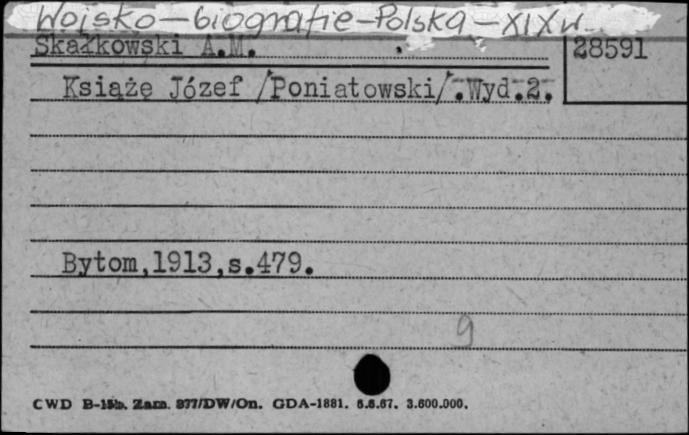 Wojsko-biografie-Polska-XIXw.
Skałkowski A.M. 28591
Książę Józef /Poniatowski/.Wyd.2.
Bytom,1913,s.479.
9
CWD B-15b. Zam. 877/DW/On. GDA-1881. 6.6.67. 3.600.000.